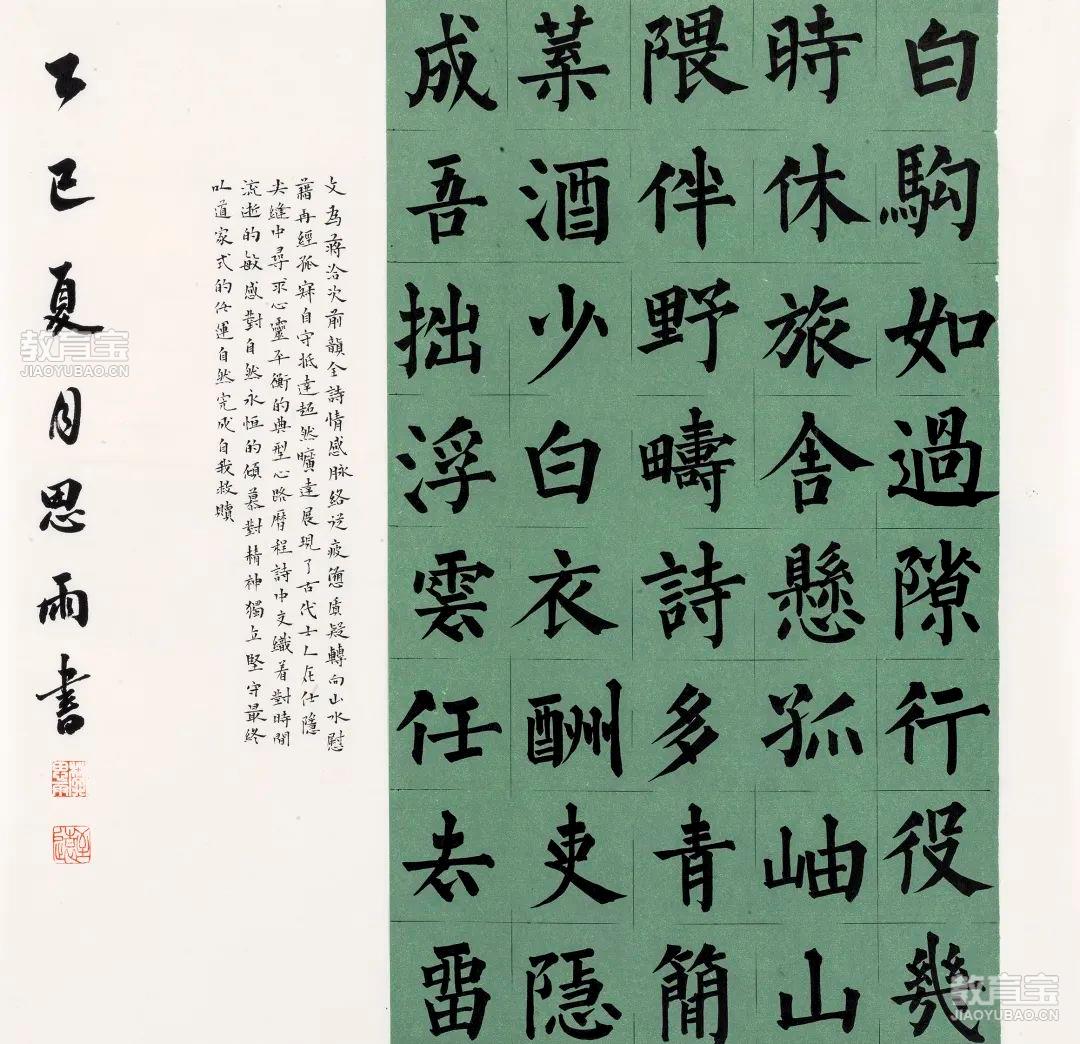 白駒如過隙行役幾
時休旅舍懸孤岫山
隈伴野疇詩多青簡
菜酒少白衣酬吏隱
成吾拙浮雲任去留
文為蔣洽次前韻全詩情感脉絡從疲憊質疑轉向山水慰
藉再經孤寂自守抵達超然曠達展現了古代士人在仕隱
夾縫中尋求心靈平衡的典型心路曆程詩中交織着對時間
流逝的敏感對自然永恒的傾慕對精神獨立堅守最終
以道家式的任運自然完成自我救贖
乙巳夏月思雨書
教育宝
JIAOYUBAO.CN
教育宝
JIAOYUBAO.CN